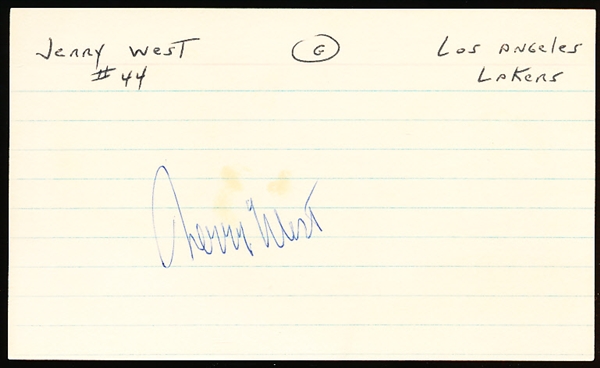 Jerry West G Los Angeles
#44 Lakers
Jherry West